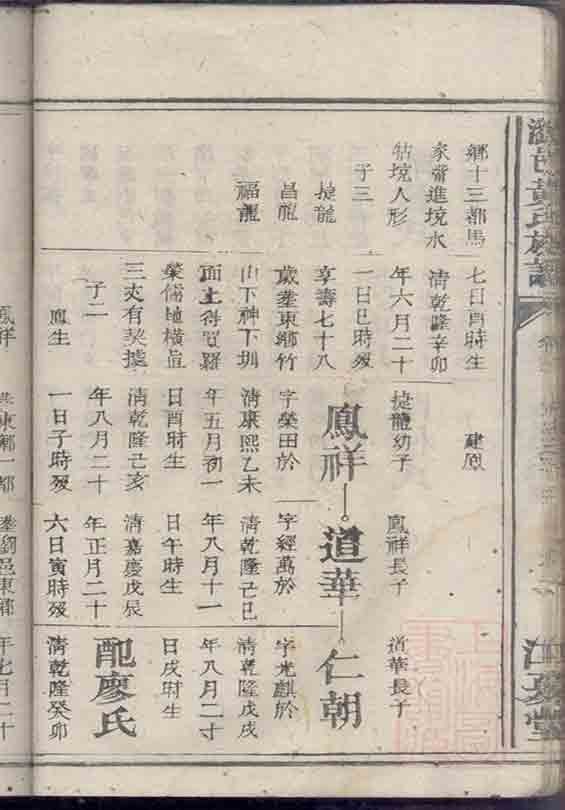 瀏邑黃氏族譜
江夏堂
鄉十三都馬
家 進境水
牯境人形
子三
捷龍
昌龍
福龍
七日酉時生
清乾隆辛卯
年六月二十
一日巳時歿
享壽七十八
歲葬東鄉竹
山下神下圳
面上得買羅
榮 植橫眞
三丈有契據
子二
鳳生
建鳳
捷龍幼子
鳳祥
字榮田於
清康熙乙未
年五月初一
日酉時生
清乾隆己亥
年八月二十
一日子時歿
鳳祥長子
道華
字經萬於
清乾隆己巳
年八月十一
日午時生
清嘉慶戊辰
年正月二十
六日寅時歿
道華長子
仁朝
字光麒於
清乾隆戊戌
年八月二十
日戌時生
配廖氏
清乾隆癸卯
鳳祥
東鄉一都
葬瀏邑東鄉
年七月二十